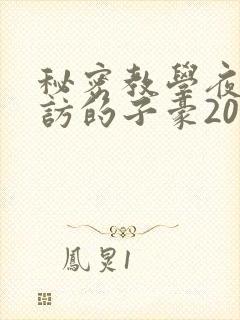 秘密教學夜
訪的子豪20
鳳炅1